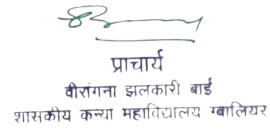 प्राचार्य
वीरांगना झलकारी बाई
शासकीय कन्या महाविद्यालय ग्वालियर